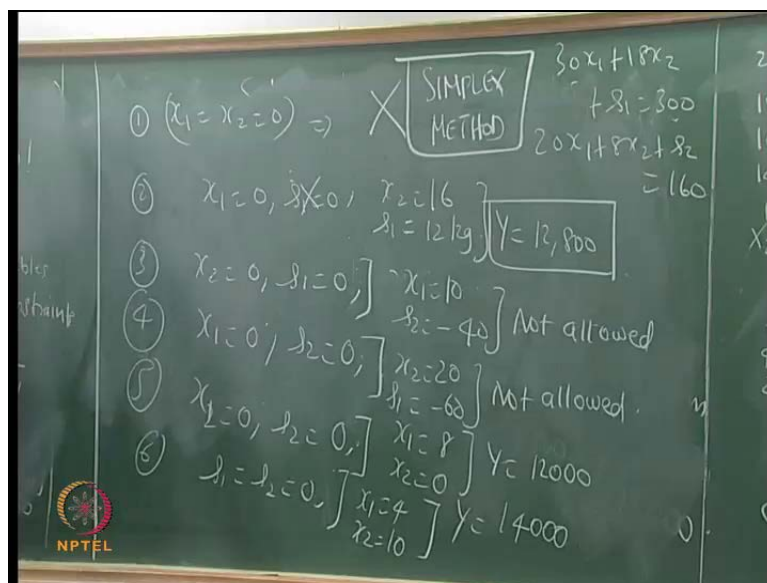 ① (x₁ = x₂ = 0) ⇒ X
SIMPLEX
METHOD
30x₁ + 18x₂
+ s₁ = 300
20x₁ + 8x₂ + s₂
= 160
② x₁ = 0, s = 0, x₂ = 16
s₁ = 12 kg } Y = 12,800
③ x₂ = 0, s₁ = 0, ] x₁ = 10
s₂ = -40 ] Not allowed
④ x₁ = 0, s₂ = 0, ] x₂ = 20
s₁ = -60 ] Not allowed.
⑤ x₂ = 0, s₂ = 0, ] x₁ = 8
x₂ = 0 ] Y = 12000
⑥ s₁ = s₂ = 0, ] x₁ = 4
x₂ = 10 ] Y = 14000
NPTEL